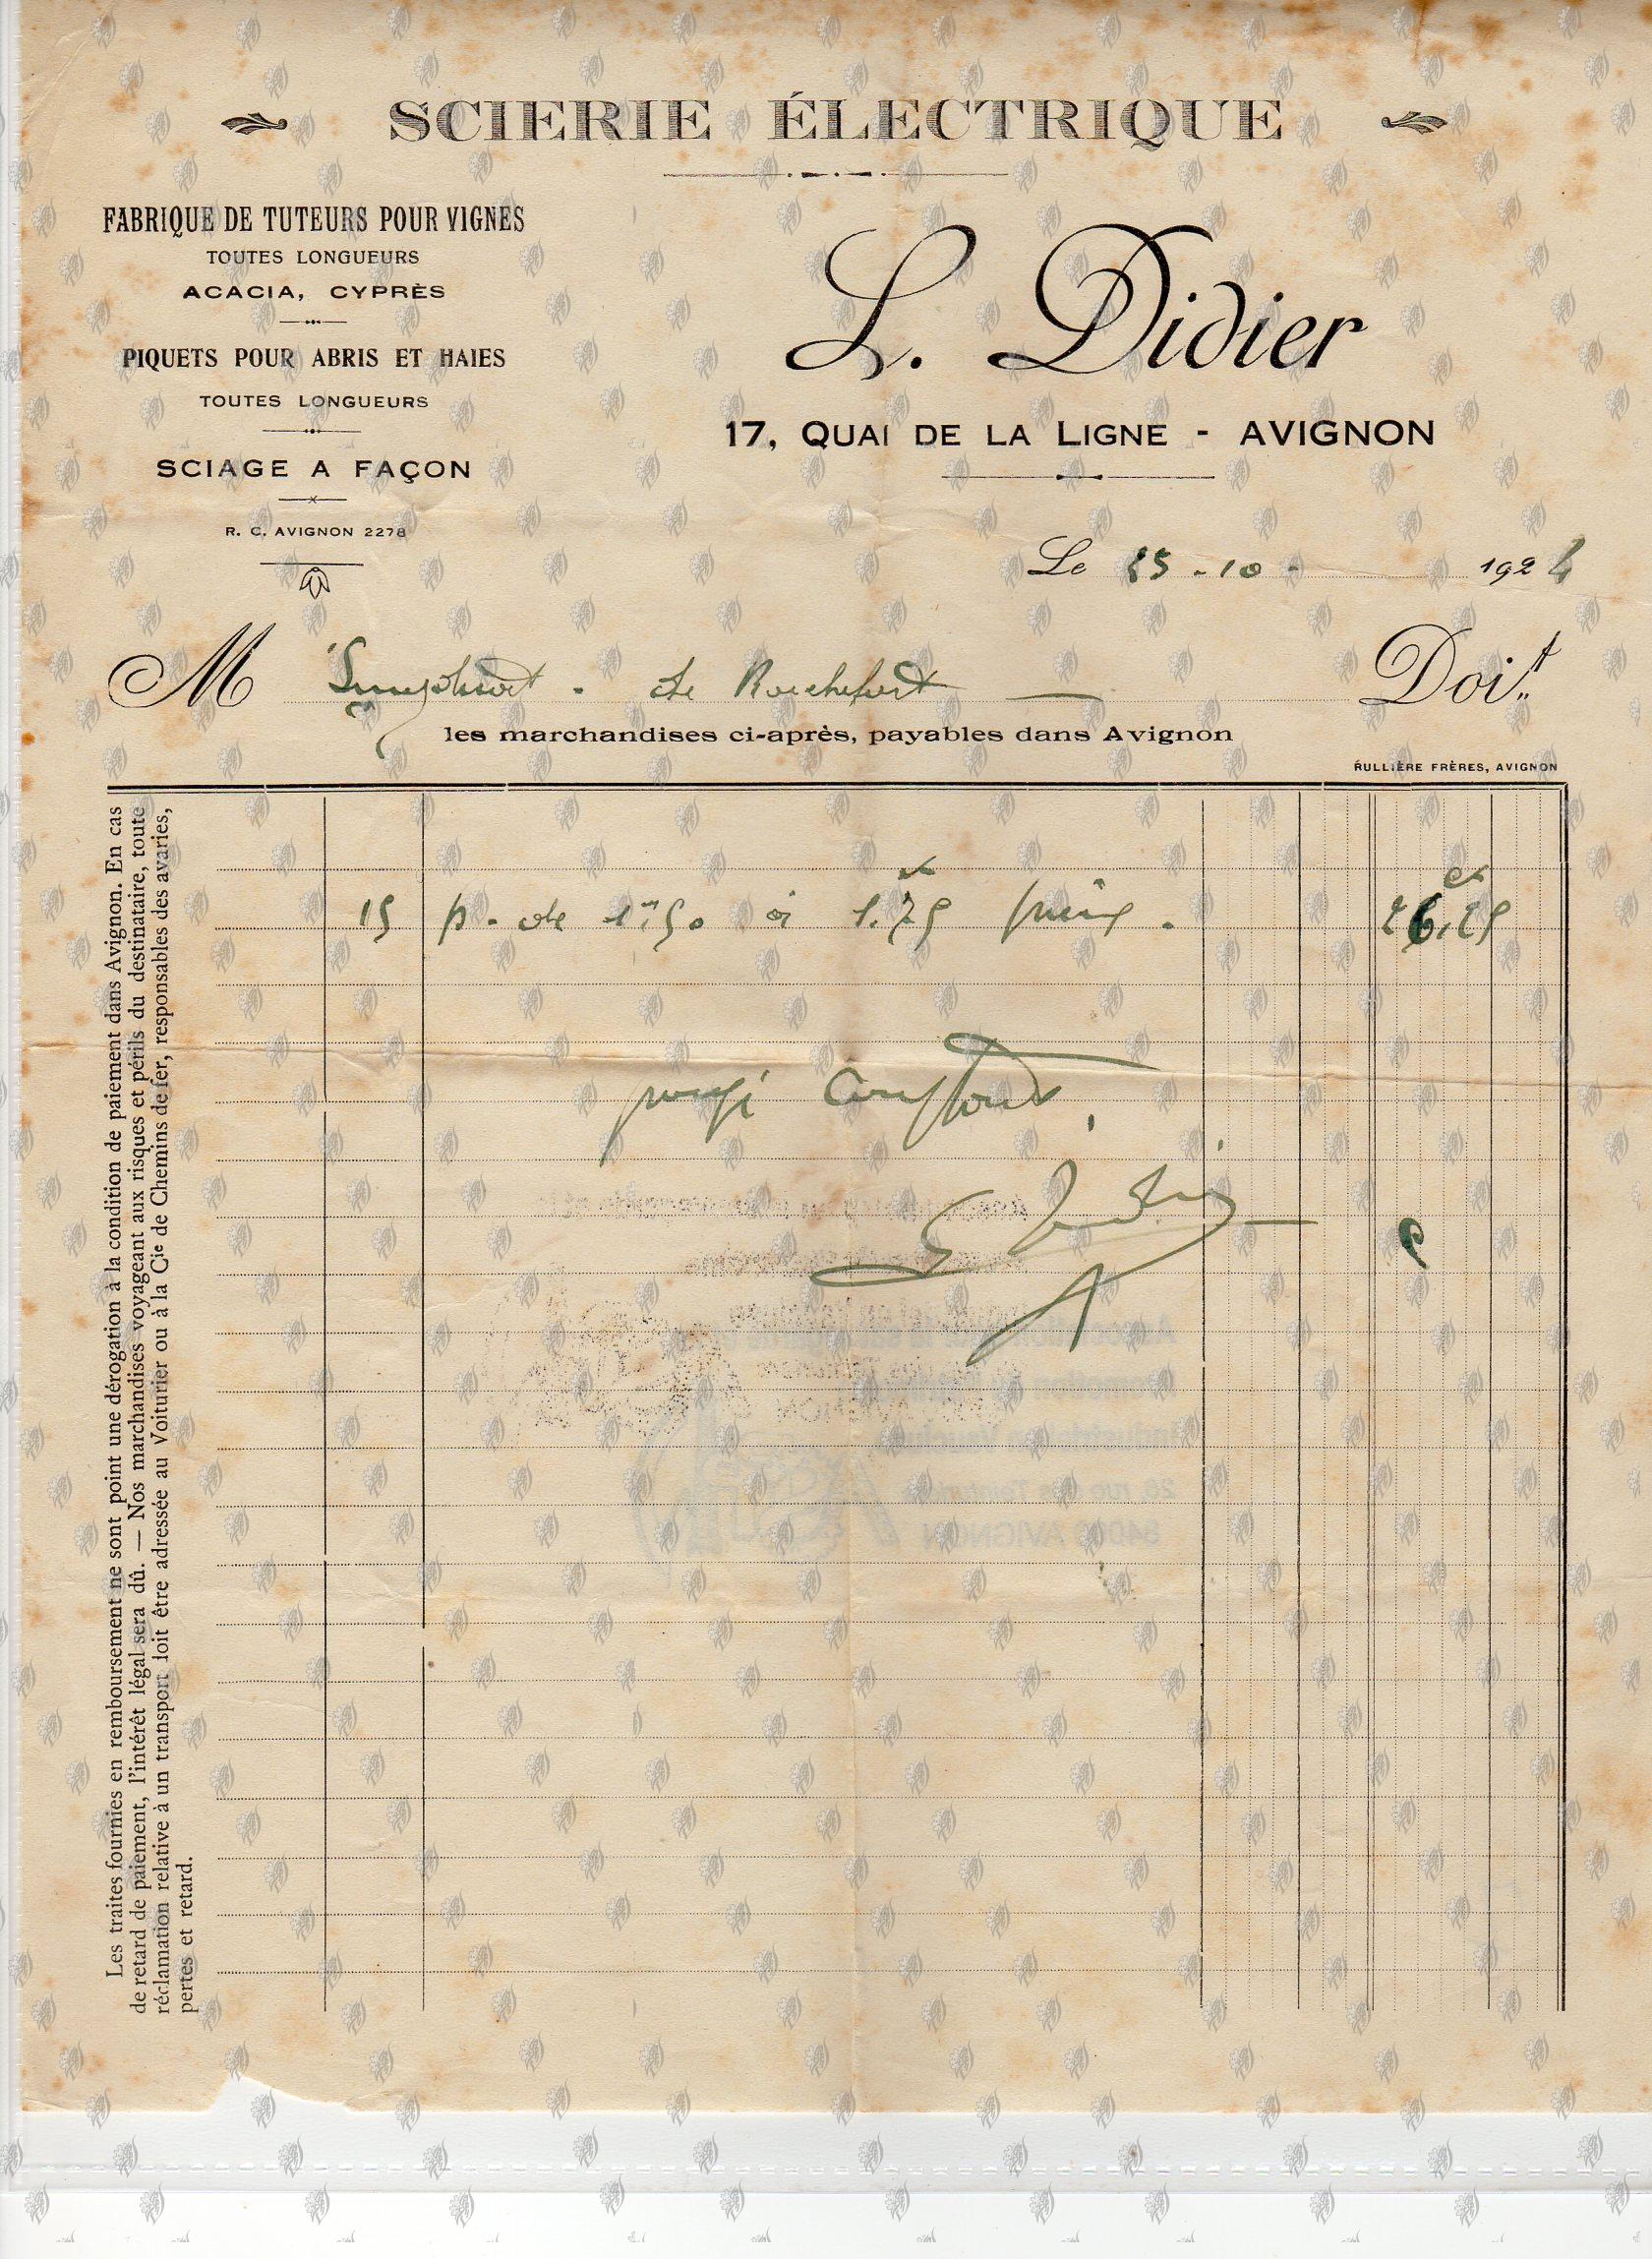 SCIERIE ÉLECTRIQUE
FABRIQUE DE TUTEURS POUR VIGNES
TOUTES LONGUEURS
ACACIA, CYPRÈS
PIQUETS POUR ABRIS ET HAIES
TOUTES LONGUEURS
SCIAGE A FAÇON
R. C. AVIGNON 2278
L. Didier
17, QUAI DE LA LIGNE - AVIGNON
Le 25 - 10 - 1924
M de Rochefort Doit
les marchandises ci-après, payables dans Avignon
RULLIÈRE FRÈRES, AVIGNON
15 p. de 1m50 à 1.75 26.25
Les traites fournies en remboursement ne sont point une dérogation à la condition de paiement dans Avignon. En cas
de retard de paiement, l'intérêt légal sera dû. — Nos marchandises voyageant aux risques et périls du destinataire, toute
réclamation relative à un transport loit être adressée au Voiturier ou à la Cie de Chemins de fer, responsables des avaries,
pertes et retard.